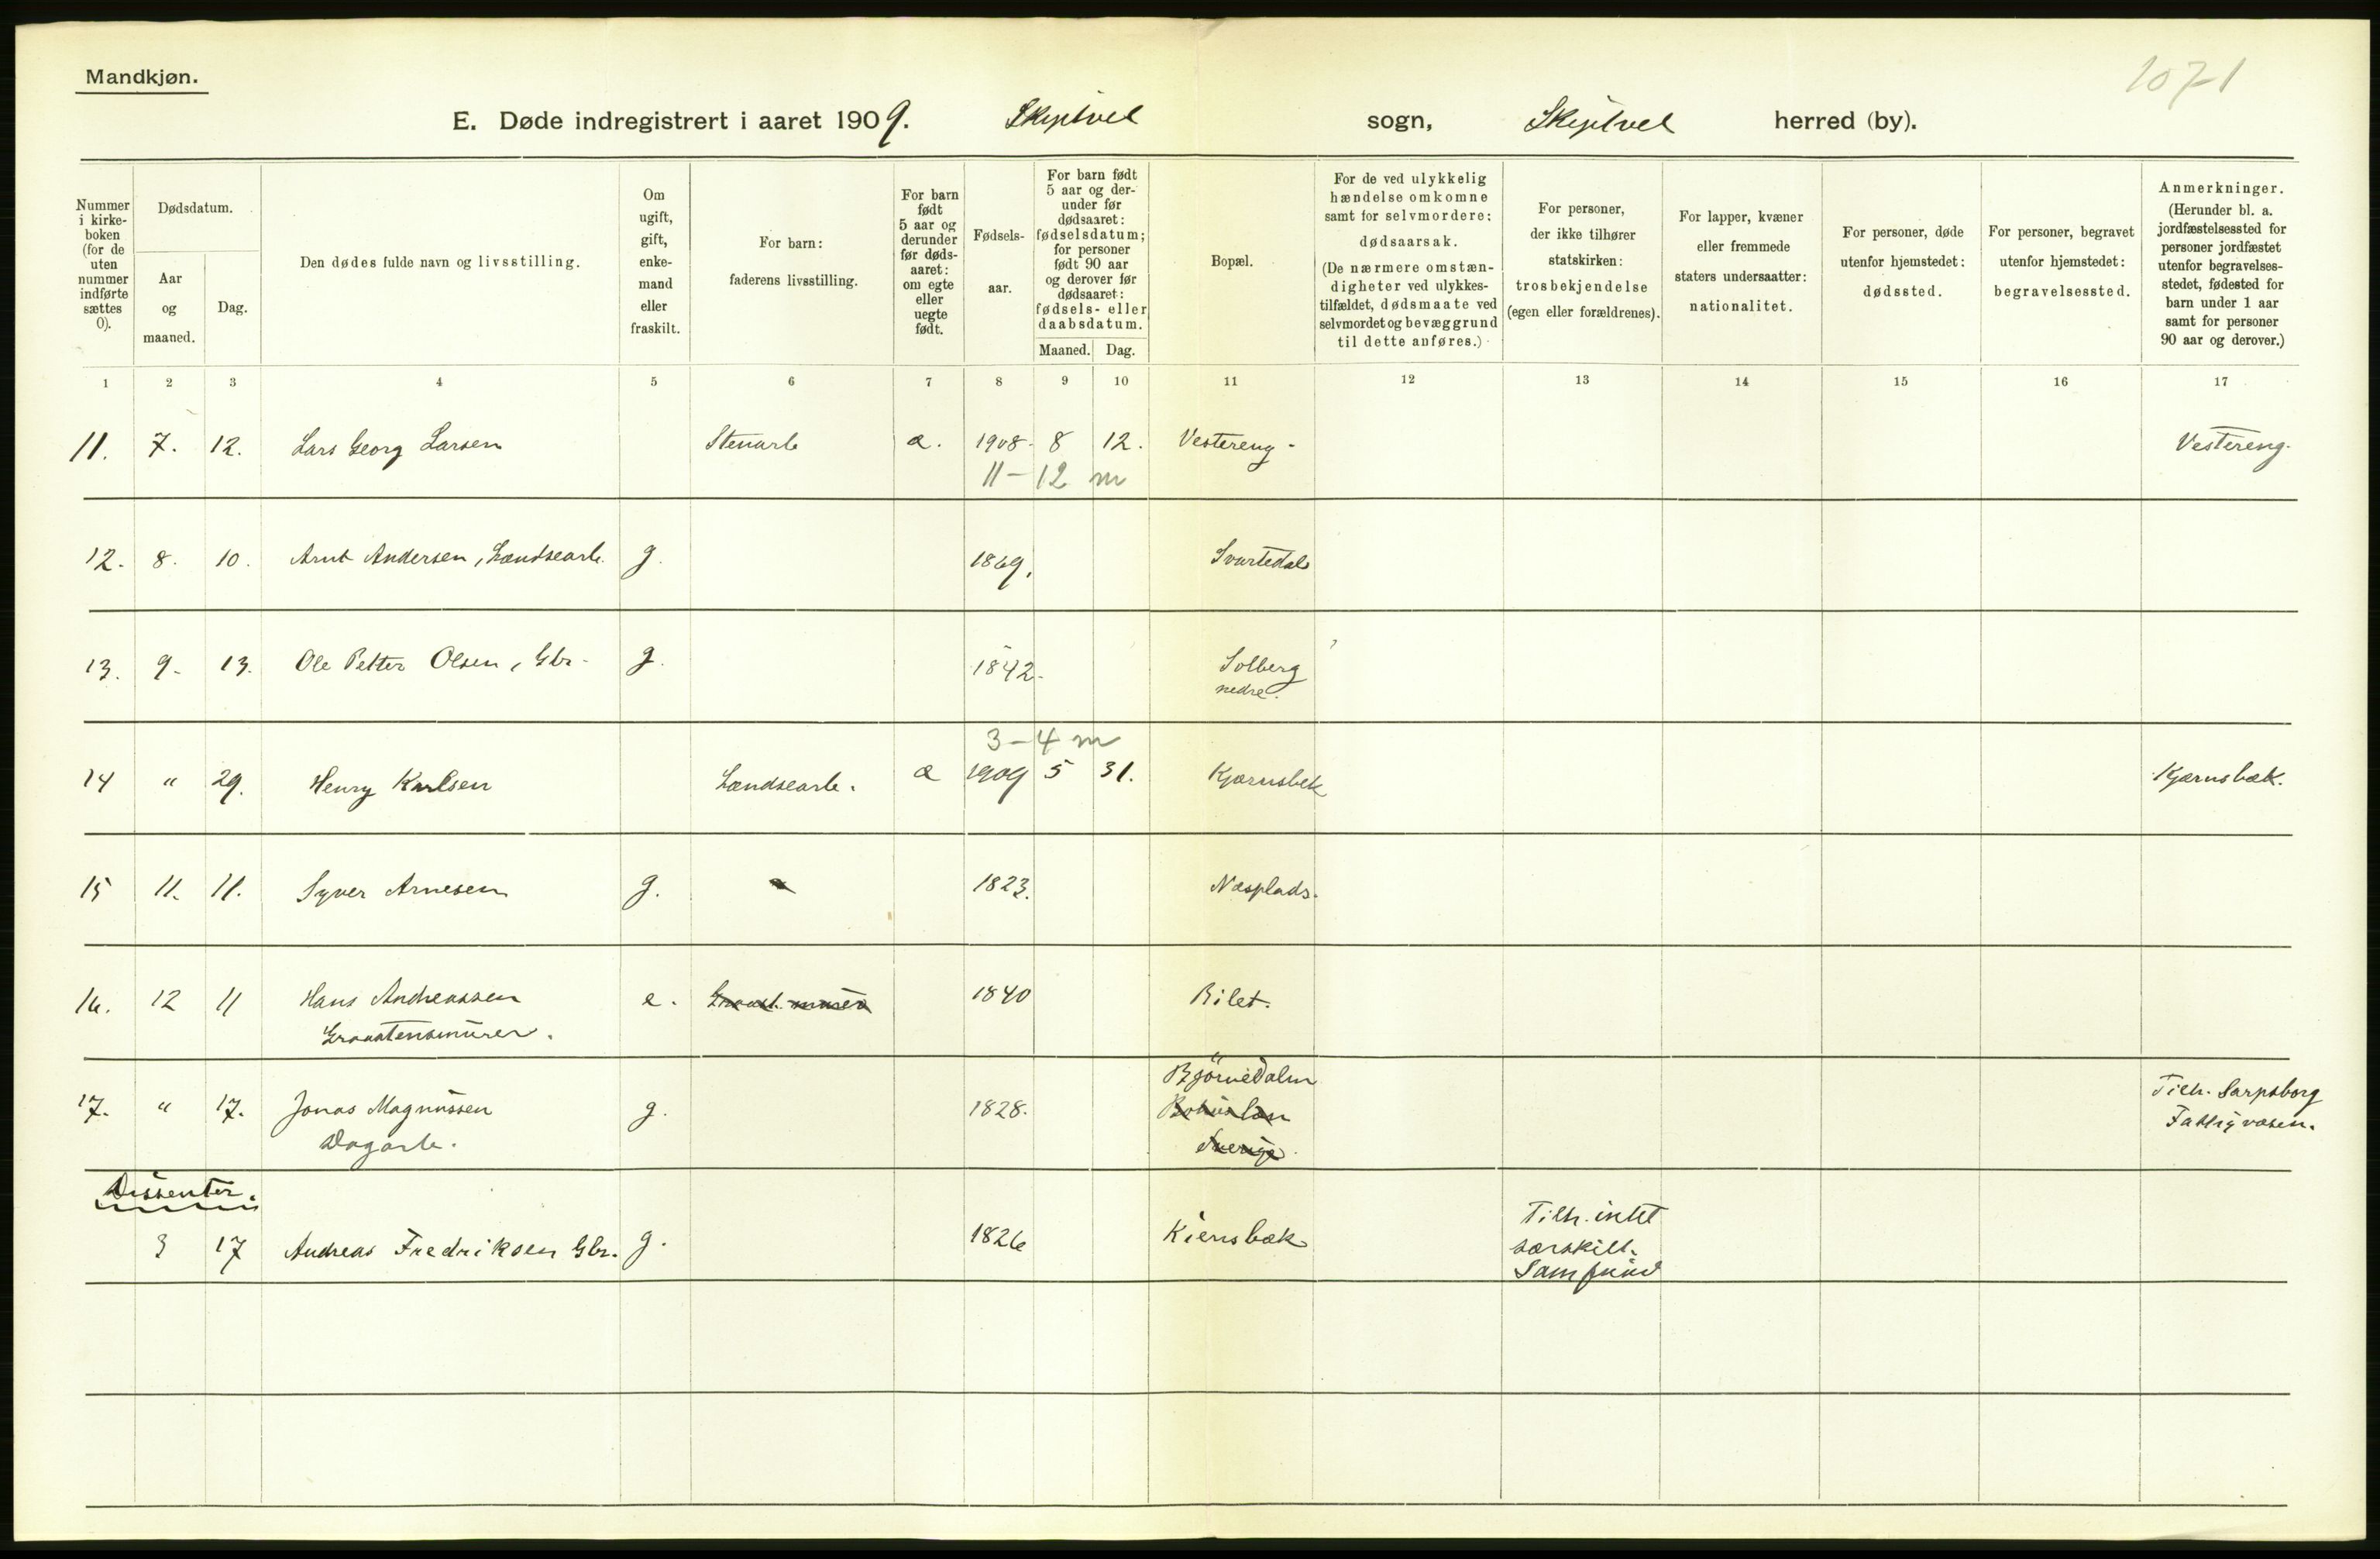 Mandkjøn.
1071
E. Døde indregistrert i aaret 1909. Skiptvet sogn, Skiptvet herred (by).
Nummer i kirke-boken (for de uten nummer indførte sættes 0).
Dødsdatum.
Aar og maaned.
Dag.
Den dødes fulde navn og livsstilling.
Om ugift, gift, enke-mand eller fraskilt.
For barn: faderens livsstilling.
For barn født 5 aar og derunder før døds-aaret: om egte eller uegte født.
Fødsels-aar.
For barn født 5 aar og der-under før dødsaaret: fødselsdatum; for personer født 90 aar og derover før dødsaaret: fødsels- eller daabsdatum.
Maaned. Dag.
Bopæl.
For de ved ulykkelig hændelse omkomne samt for selvmordere: dødsaarsak. (De nærmere omstæn-digheter ved ulykkes-tilfældet, dødsmaate ved selvmordet og bevæggrund til dette anføres.)
For personer, der ikke tilhører statskirken: trosbekjendelse (egen eller forældrenes).
For lapper, kvæner eller fremmede staters undersaatter: nationalitet.
For personer, døde utenfor hjemstedet: dødssted.
For personer, begravet utenfor hjemstedet: begravelsessted.
Anmerkninger. (Herunder bl. a. jordfæstelsessted for personer jordfæstet utenfor begravelses-stedet, fødested for barn under 1 aar samt for personer 90 aar og derover.)
1 2 3 4 5 6 7 8 9 10 11 12 13 14 15 16 17
11. 7. 12. Lars Georg Larsen Stenarb æ. 1908. 8 12. Vestereng. Vestereng.
11-12 m
12. 8. 10. Arnt Andersen, Landsearb. g. 1869. Svartedal
13. 9. 13. Ole Petter Olsen, Gbr. g. 1842. Solberg
nedre.
3-4 m
14 " 29. Henry Karlsen Landsearb. æ 1909 5 31. Kjærnsbek Kjærnsbæk.
15 11. 11. Syver Arnesen g. 1823. Næsplads.
16. 12 11 Hans Andreassen e. 1840 Rilet.
Graastensmurer.
Björnedalen
17. " 17. Jonas Magnussen g. 1828. Bohuslæn Tilh. Sarpsborg
Dagarb. Sverige Fattigvæsen.
Dissenter.
Tilh. intet
3 17 Andreas Fredriksen Gbr. g. 1826 Kiensbæk særskilt.
Samfund